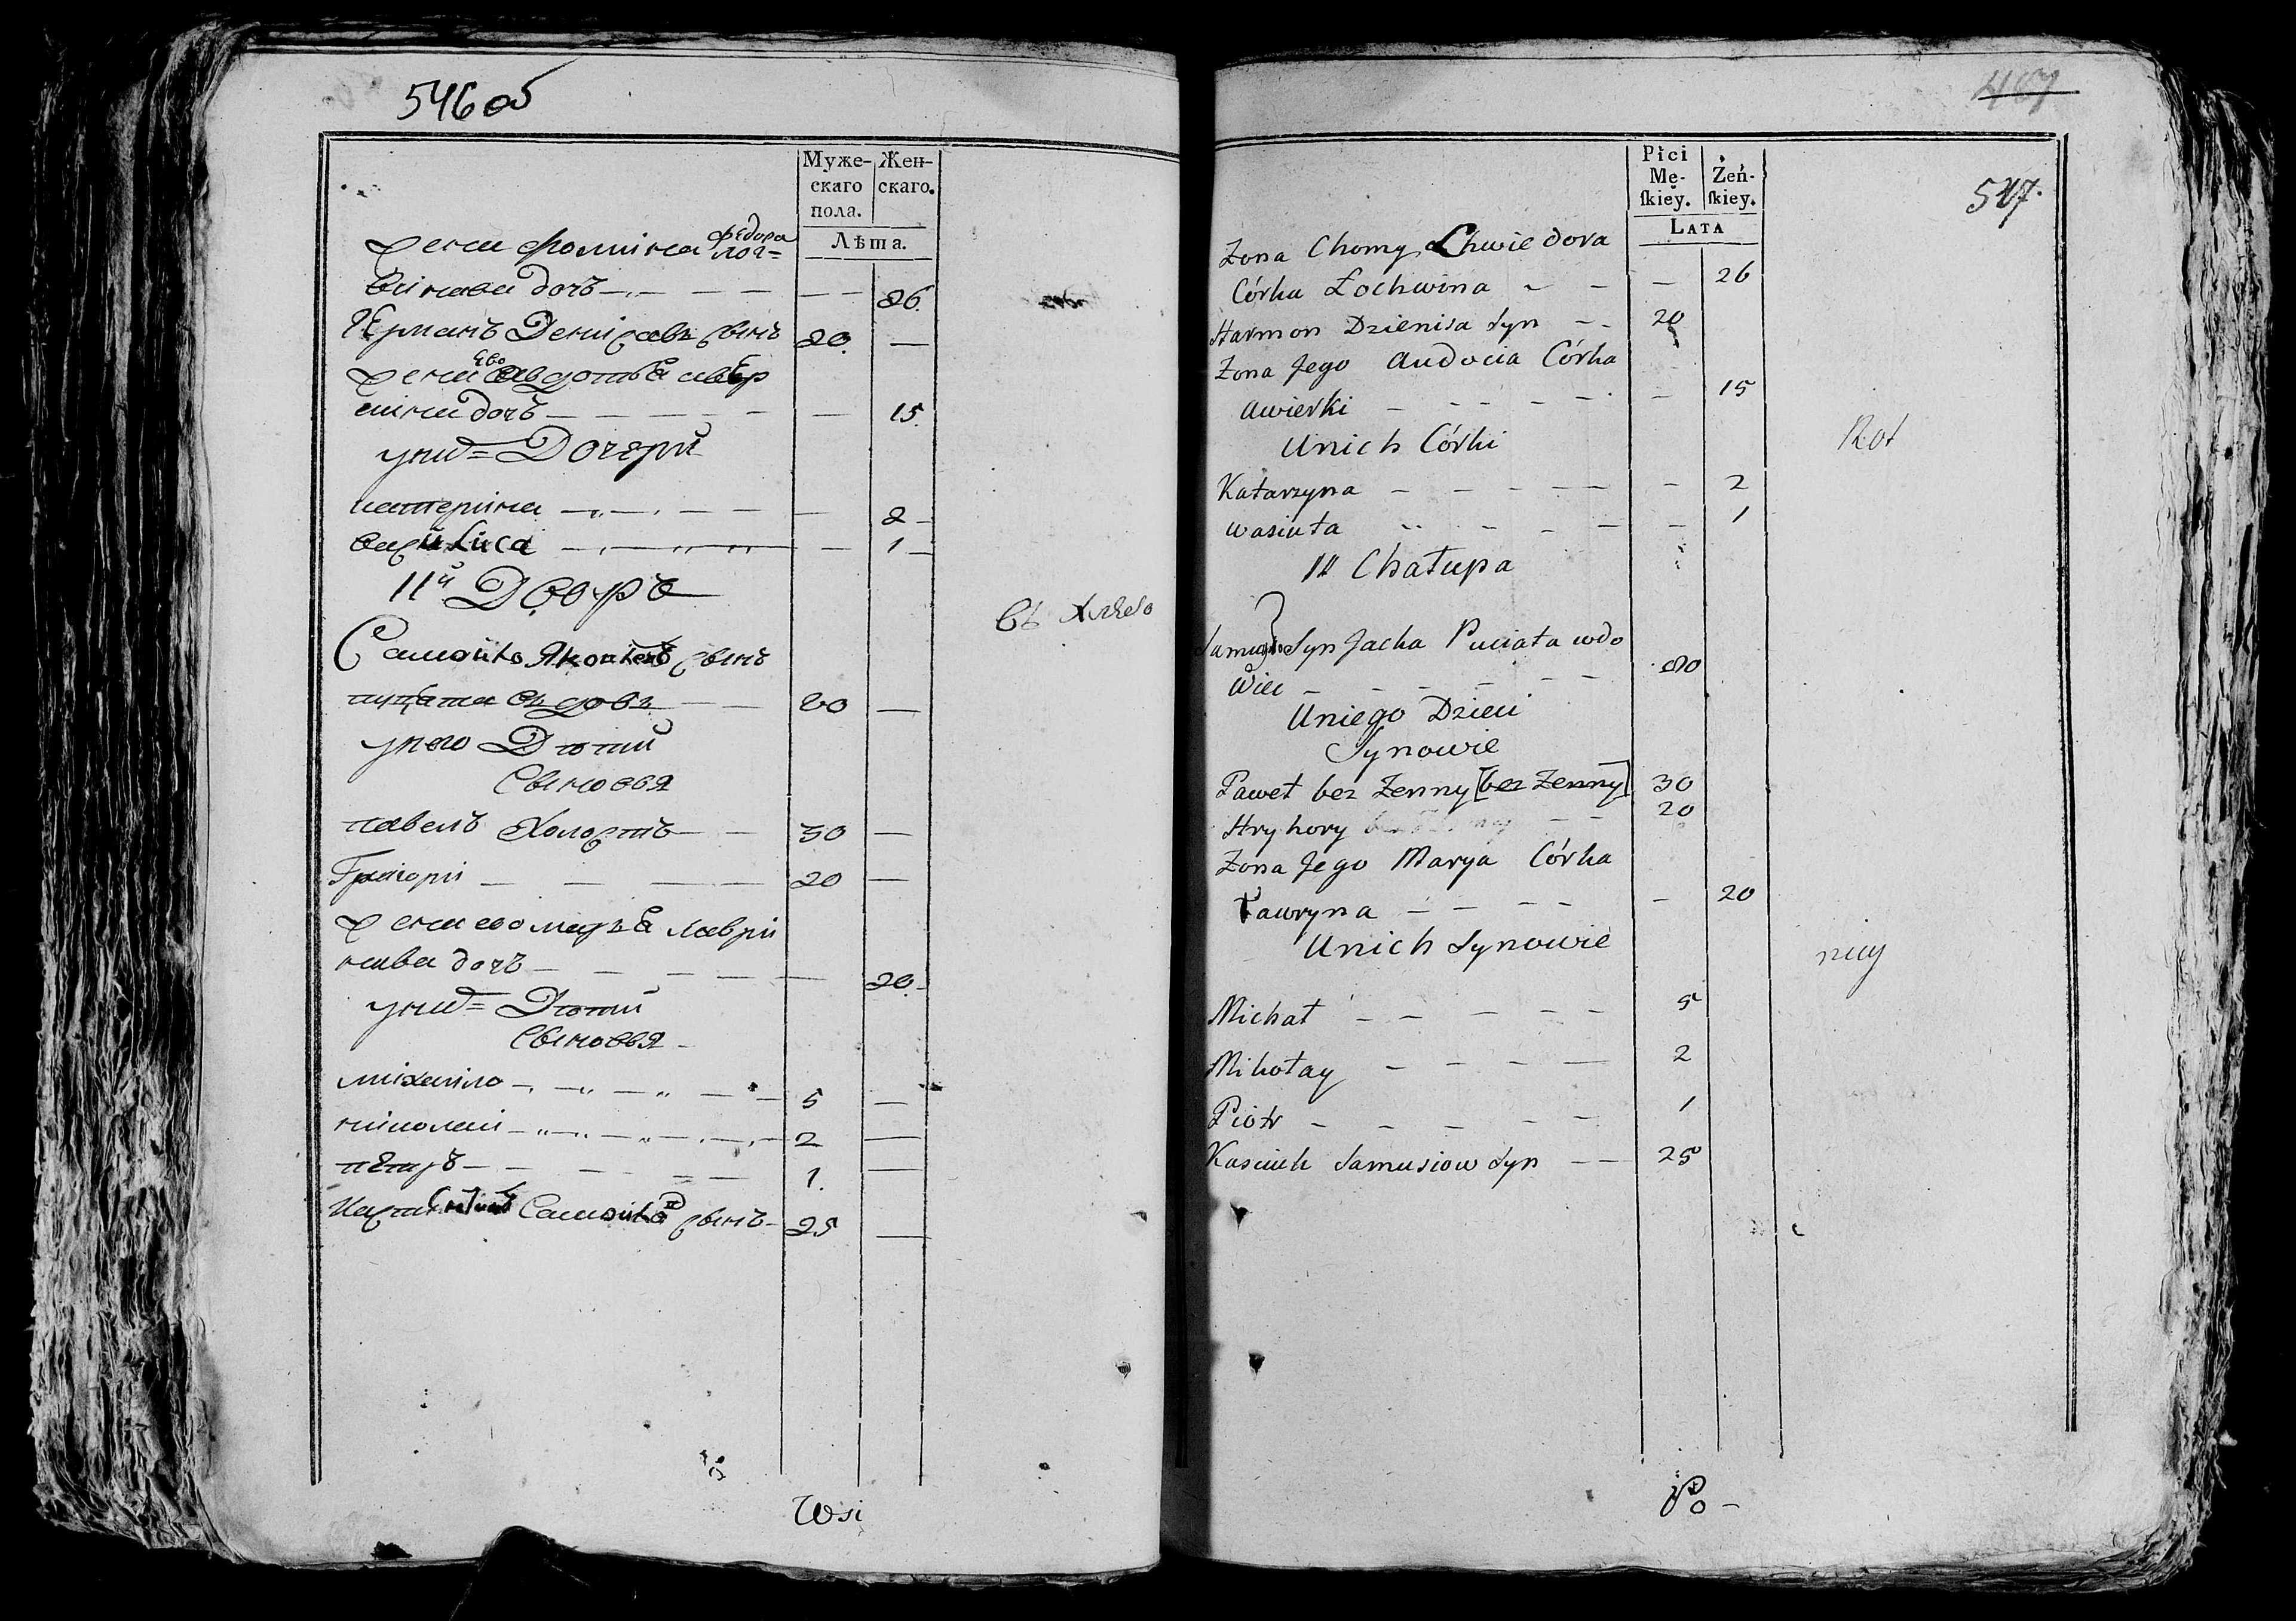 546 об
Муже- Жен-
скаго скаго.
пола.
Лѣта.
жена Фомина Федора
Лог=
винава дочь — — — — 26.
Германъ Денисавъ сынъ 20. —
жена Ево Авдотья Авер
кина дочь — — — — 15.
у них= Дочери
катерина — — — — 2 —
Василиса — — — — 1 —
11й Дворъ
Самойло Яковлевъ сынъ
пуцата вдовъ — — 80 —
у него Дѣти
Сыновья
павелъ Холостъ — — 30 —
Григори — — — — 20 —
жена ево марья лаври
нава дочь — — — — 20.
у них= Дѣти
Сыновья —
михаило — — — — 5 —
николаи — — — — 2 —
пётръ — — — — 1. —
Самойло сынъ — 25 —
Wsi
съ
467
547.
Płci
Mę- Żeń-
ſkiey. ſkiey.
LATA
Zona Chomy Chwiedora
Córka Łochwina — — — 26
Harmon Dzienisa Syn — — 20
Zona Jego Audocia Córka
Awierki — — — — — 15
Unich Córki
Katarzyna — — — — — 2
Wasiuta — — — — 1
11 Chałupa
Samuyło Syn Jacka Puciata wdo
wiec — — — — — 80
Uniego Dzieci
Synowie
Paweł bez Zenny [bez Zenny] 30
Hryhory — — 20
Zona Jego Marya Córka
Ławryna — — — — — 20
Unich Synowie
Michał — — — — — 5
Mikołay — — — — 2
Piotr — — — — — 1
Kasciuk Samusiow Syn — — 25
Rot
Po —